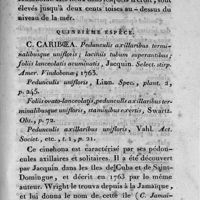 élevés jusqu'à deux cents toises au-dessus du
niveau de la mer.
QUINZIÈME ESPÈCE.
C. CARIBŒA. Pedunculis axillaribus termi-
nalibusque unifloris; laciniis tubum superantibus;
foliis lanceolato acuminatis, Jacquin. Select. stirp.
Amer. Vindobonæ; 1763.
Pedunculis unifloris, Linn. Spec., plant. 2,
p. 245.
Foliis ovato-lanceolatis, pedunculis axillaribus ter-
minalibusque unifloris, staminibus exertis, Swartz.
Obs., p. 72.
Pedunculis axillaribus unifloris, Vahl. Act.
Societ., etc., t. 1, p. 21.
Ce cinchona est caractérisé par ses pédon-
cules axillaires et solitaires. Il a été découvert
par Jacquin dans les îles de Cuba et de Saint-
Domingue, et décrit en 1763 par le même
auteur. Wright le trouva depuis à la Jamaïque,
et lui donna le nom de cette île (C. Jamai-